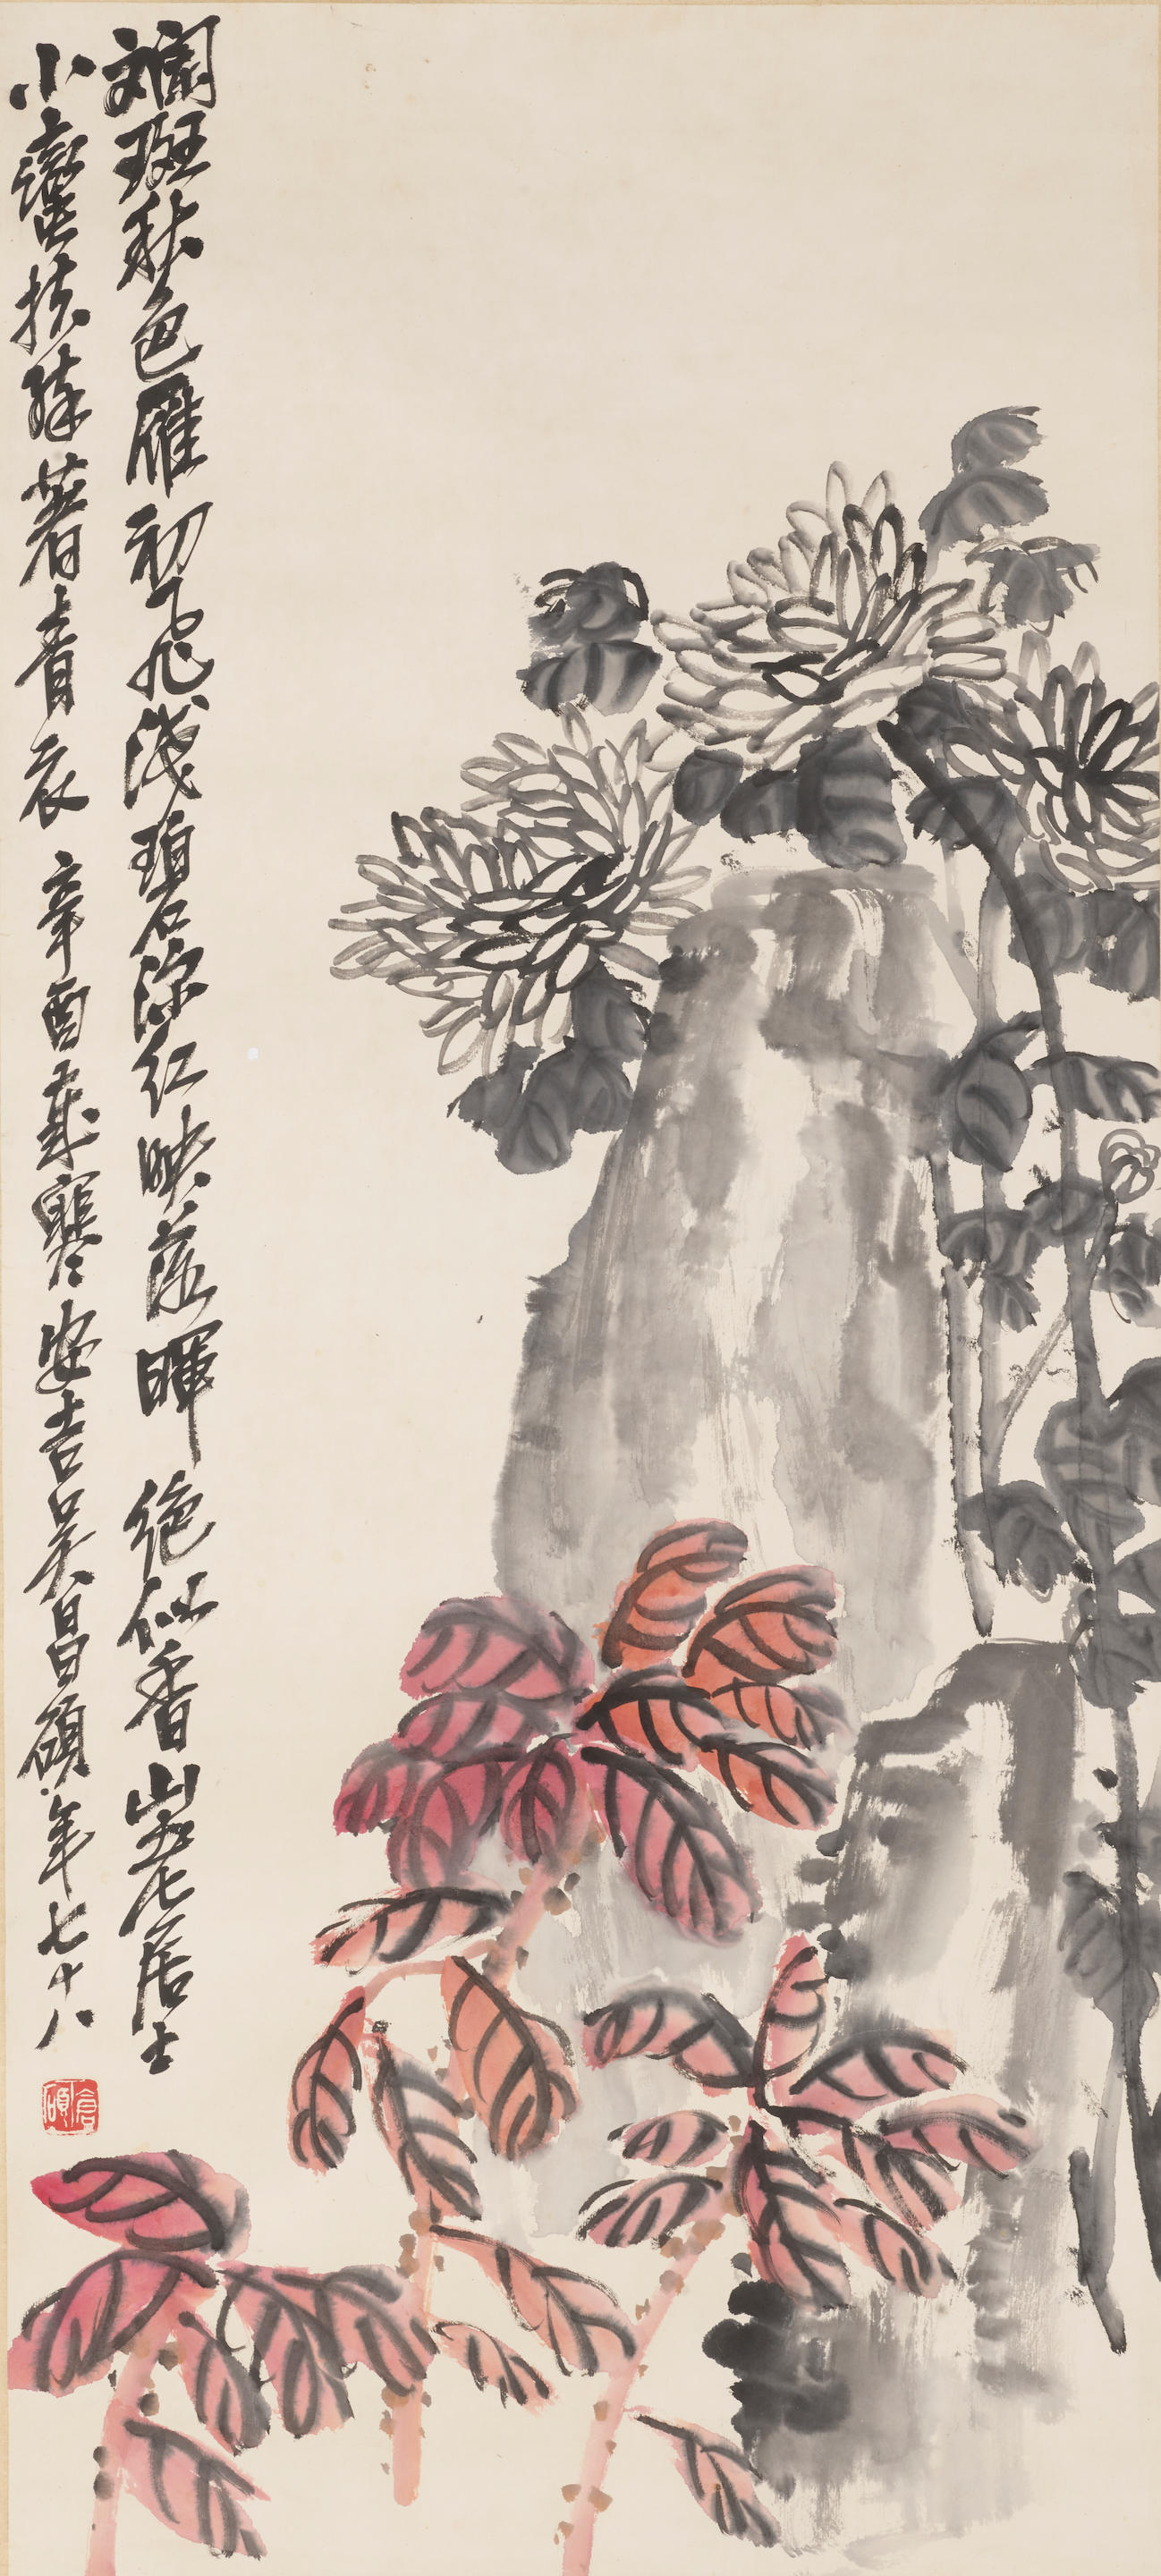 斕斑秋色雁初飛淺碧深紅映落暉絕似香山老居士
小蠻扶醉著青衣辛酉歲寒安吉吳昌碩年七十八
倉碩